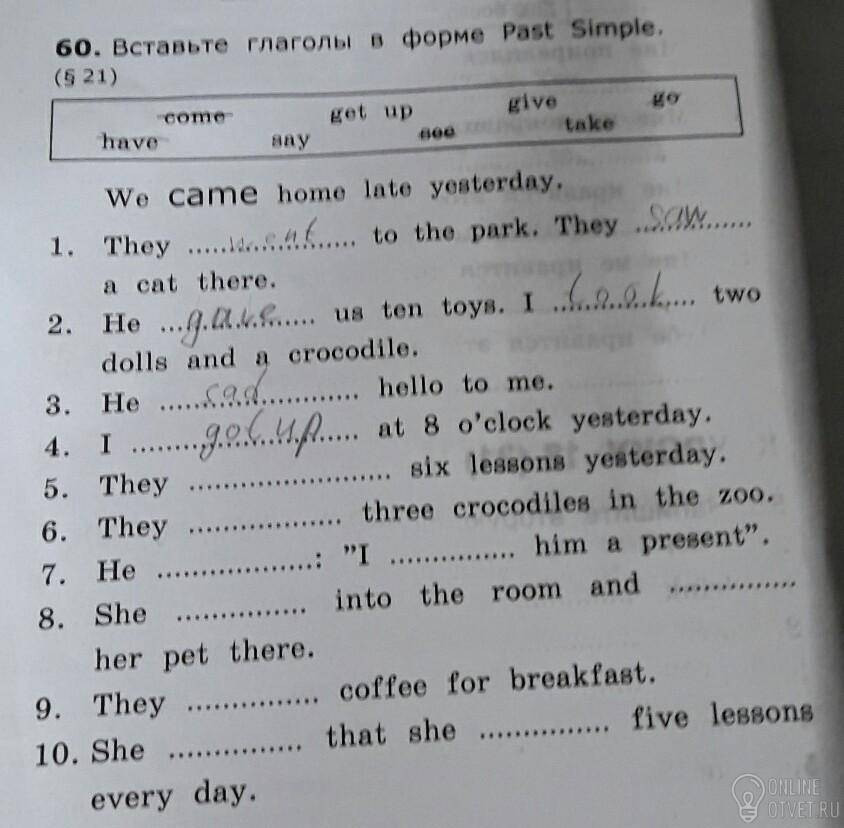 60. Вставьте глаголы в форме Past Simple.
(§ 21)
come get up give go
have say see take
We came home late yesterday.
1. They ......went...... to the park. They ...saw.........
a cat there.
2. He ...gave......... us ten toys. I ...took...... two
dolls and a crocodile.
3. He ......sad............ hello to me.
4. I .........got up...... at 8 o'clock yesterday.
5. They ........................ six lessons yesterday.
6. They .................. three crocodiles in the zoo.
7. He ..................: "I ............... him a present".
8. She ............... into the room and ...............
her pet there.
9. They ............... coffee for breakfast.
10. She ............... that she ............... five lessons
every day.
ONLINE
OTVET.RU